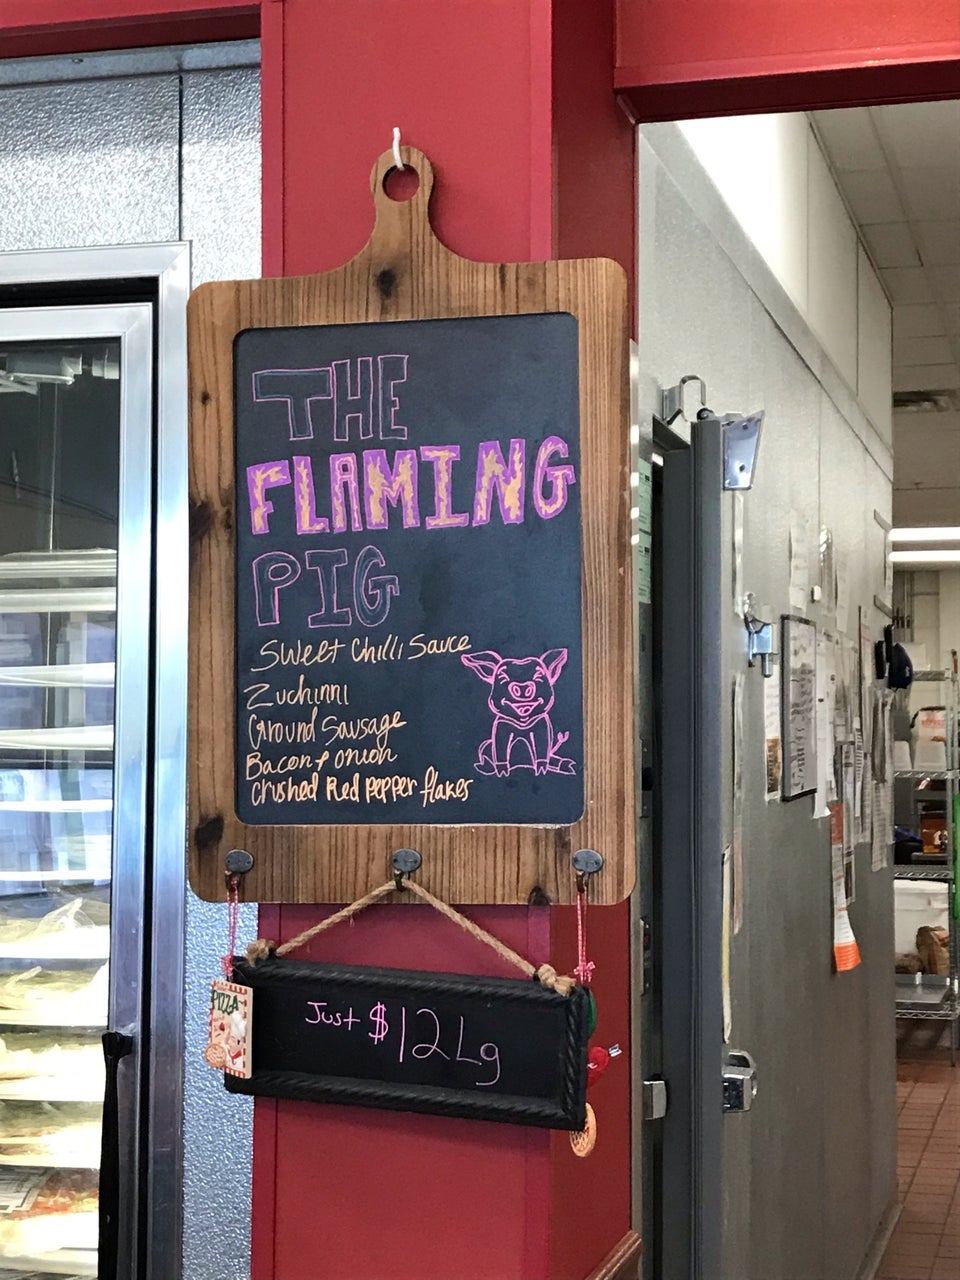 THE
FLAMING
PIG
Sweet Chilli Sauce
Zuchinni
Ground Sausage
Bacon + onion
Crushed Red pepper flakes
Just $12 Lg
PIZZA